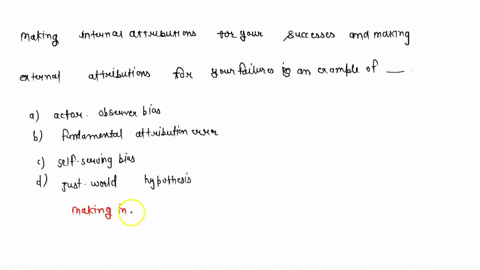 making internal attributions for your successes and making
external attributions for your failures is an example of __.
a) actor-observer bias
b) fundamental attribution error
c) self-serving bias
d) just-world hypothesis
making in